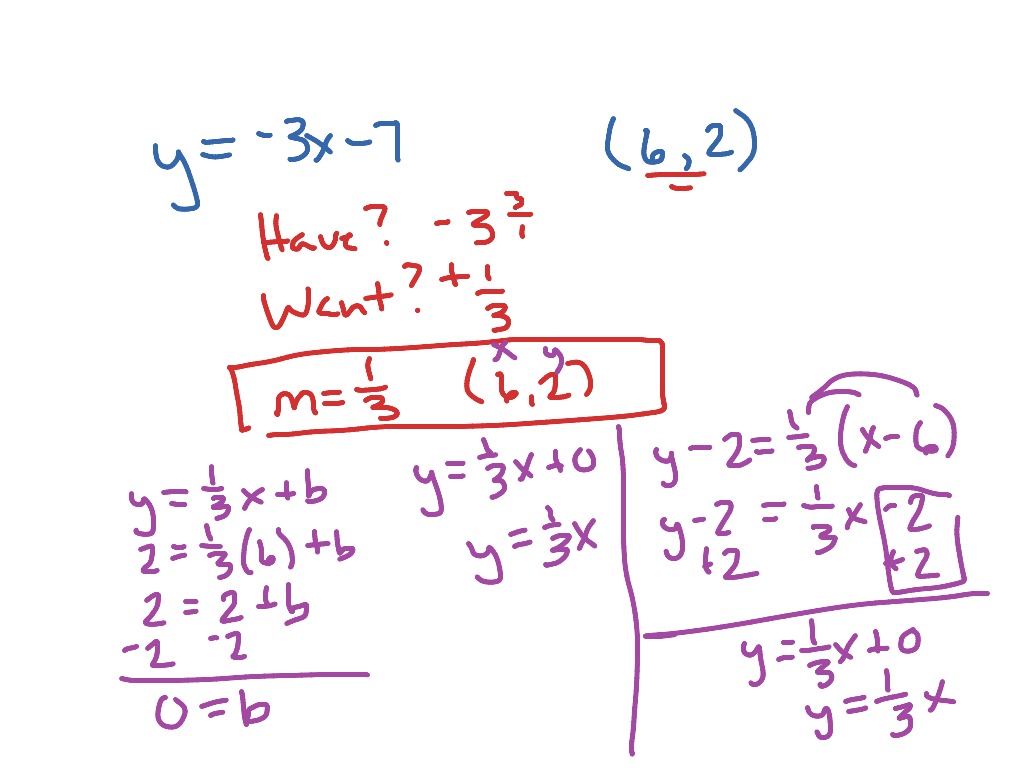 y = -3x - 7
(6, 2)
Have? -3 3/1
Want? + 1/3
m = 1/3 (6, 2)
x y
y = 1/3 x + b
2 = 1/3 (6) + b
2 = 2 + b
-2 -2
0 = b
y = 1/3 x + 0
y = 1/3 x
y - 2 = 1/3 (x - 6)
y - 2 = 1/3 x - 2
+2 +2
y = 1/3 x + 0
y = 1/3 x